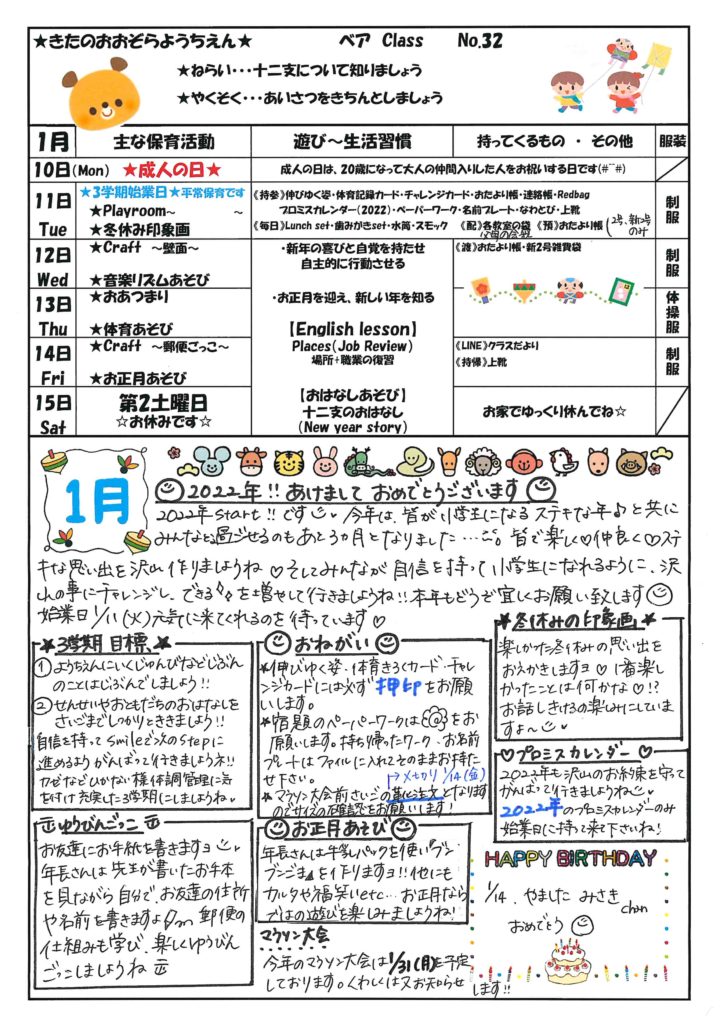 ★きたのおおぞらようちえん★ ベア Class No.32
★ねらい・・・十二支について知りましょう
★やくそく・・・あいさつをきちんとしましょう
1月 主な保育活動 遊び～生活習慣 持ってくるもの ・ その他 服装
10日(Mon) ★成人の日★ 成人の日は、20歳になって大人の仲間入りした人をお祝いする日です(#^^#)
11日 Tue
★3学期始業日★平常保育です
★Playroom～ ～
★冬休み印象画
《持参》伸びゆく姿・体育記録カード・チャレンジカード・おたより帳・連絡帳・Redbag
プロミスカレンダー(2022)・ペーパーワーク・名前プレート・なわとび・上靴
《毎日》Lunch set・歯みがきset・水筒・スモック 《配》各教室の袋 《預》おたより帳
父母の会報
2号、新2号のみ
制服
12日 Wed
★Craft ～壁面～
★音楽リズムあそび
・新年の喜びと自覚を持たせ
自主的に行動させる
《渡》おたより帳・新2号雑費袋
制服
13日 Thu
★おあつまり
★体育あそび
・お正月を迎え、新しい年を知る
【English lesson】
Places(Job Review)
場所+職業の復習
体操服
14日 Fri
★Craft ～郵便ごっこ～
★お正月あそび
《LINE》クラスだより
《持帰》上靴
制服
15日 Sat
第2土曜日
☆お休みです☆
【おはなしあそび】
十二支のおはなし
(New year story)
お家でゆっくり休んでね☆
1月
2022年!! あけまして おめでとうございます
2022年start!!です 今年は、皆が小学生になるステキな年♪と共に
みんなと過ごせるのもあと3ヵ月となりました…。皆で楽しく♡仲良く♡ステ
キな思い出を沢山作りましょうね♡そしてみんなが自信を持って小学生になれるように、沢
山の事にチャレンジし、できるを増やして行きましょうね!!本年もどうぞ宜しくお願い致します
始業日1/11(火)元気に来てくれるのを待っています♡
★3学期目標★
① ようちえんにいくじゅんびなどじぶん
のことはじぶんでしましょう!!
② せんせいやおともだちのおはなしを
さいごまでしっかりとききましょう!!
自信を持ってsmileで次のstepに
進めるようがんばって行きましょうネ!!
カゼなどひかない様体調管理に気
を付け充実した3学期にしましょうね♡
おねがい
★伸びゆく姿・体育きろくカード・チャレ
ンジカードには必ず押印をお願
いします。
★宿題のペーパーワークは をお
願いします。持ち帰ったワーク・お名前
プレートはファイルに入れてそのままお持た
せ下さい。
→〆切り 1/14(金)
★マラソン大会前さいごの靴注文となります
のでサイズの確認をお願いします!
★冬休みの印象画★
楽しかった冬休みの思い出を
おえがきしますヨ♡1番楽し
かったことは何かな♡!?
お話しきけるの楽しみにしてい
ますよ～♡
♡プロミスカレンダー♡
2022年も沢山のお約束を守って
がんばって行きましょうね
2022年のプロミスカレンダーのみ
始業日に持って来て下さいね!
ゆうびんごっこ
お友達にお手紙を書きますヨ
年長さんは先生が書いたお手本
を見ながら自分で、お友達の住所
や名前を書きますよ 郵便の
仕組みも学び、楽しくゆうびん
ごっこしましょうね
お正月あそび
年長さんは牛乳パックを使いブン
ブンゴマを作りますヨ!!他にも
カルタや福笑いetc…お正月なら
ではの遊びを楽しみましょうね!
マラソン大会
今年のマラソン大会は1/31(月)を予定
しております。くわしくは又お知らせ
します!!
HAPPY BIRTHDAY
1/14. やました みさき
chan
おめでとう